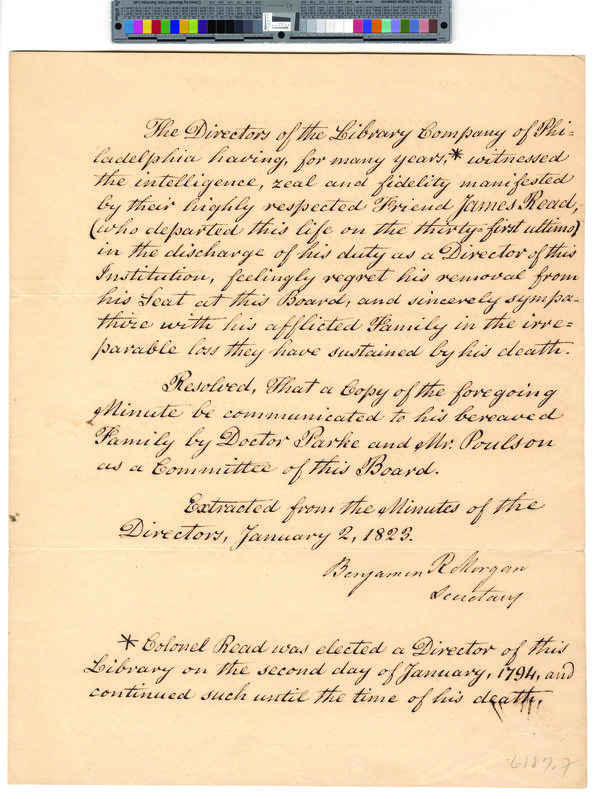 The Directors of the Library Company of Phi=
ladelphia having, for many years,* witnessed
the intelligence, zeal and fidelity manifested
by their highly respected Friend James Read,
(who departed this life on the thirty-first ultimo)
in the discharge of his duty as a Director of this
Institution, feelingly regret his removal from
his Seat at this Board, and sincerely sympa-
thize with his afflicted Family in the irre=
parable loss they have sustained by his death.
Resolved, That a Copy of the foregoing
Minute be communicated to his bereaved
Family by Doctor Parke and Mr. Poulson
as a Committee of this Board.
Extracted from the Minutes of the
Directors, January 2, 1823.
Benjamin R Morgan
Secretary
* Colonel Read was elected a Director of this
Library on the second day of January, 1794, and
continued such until the time of his death.
6187.7